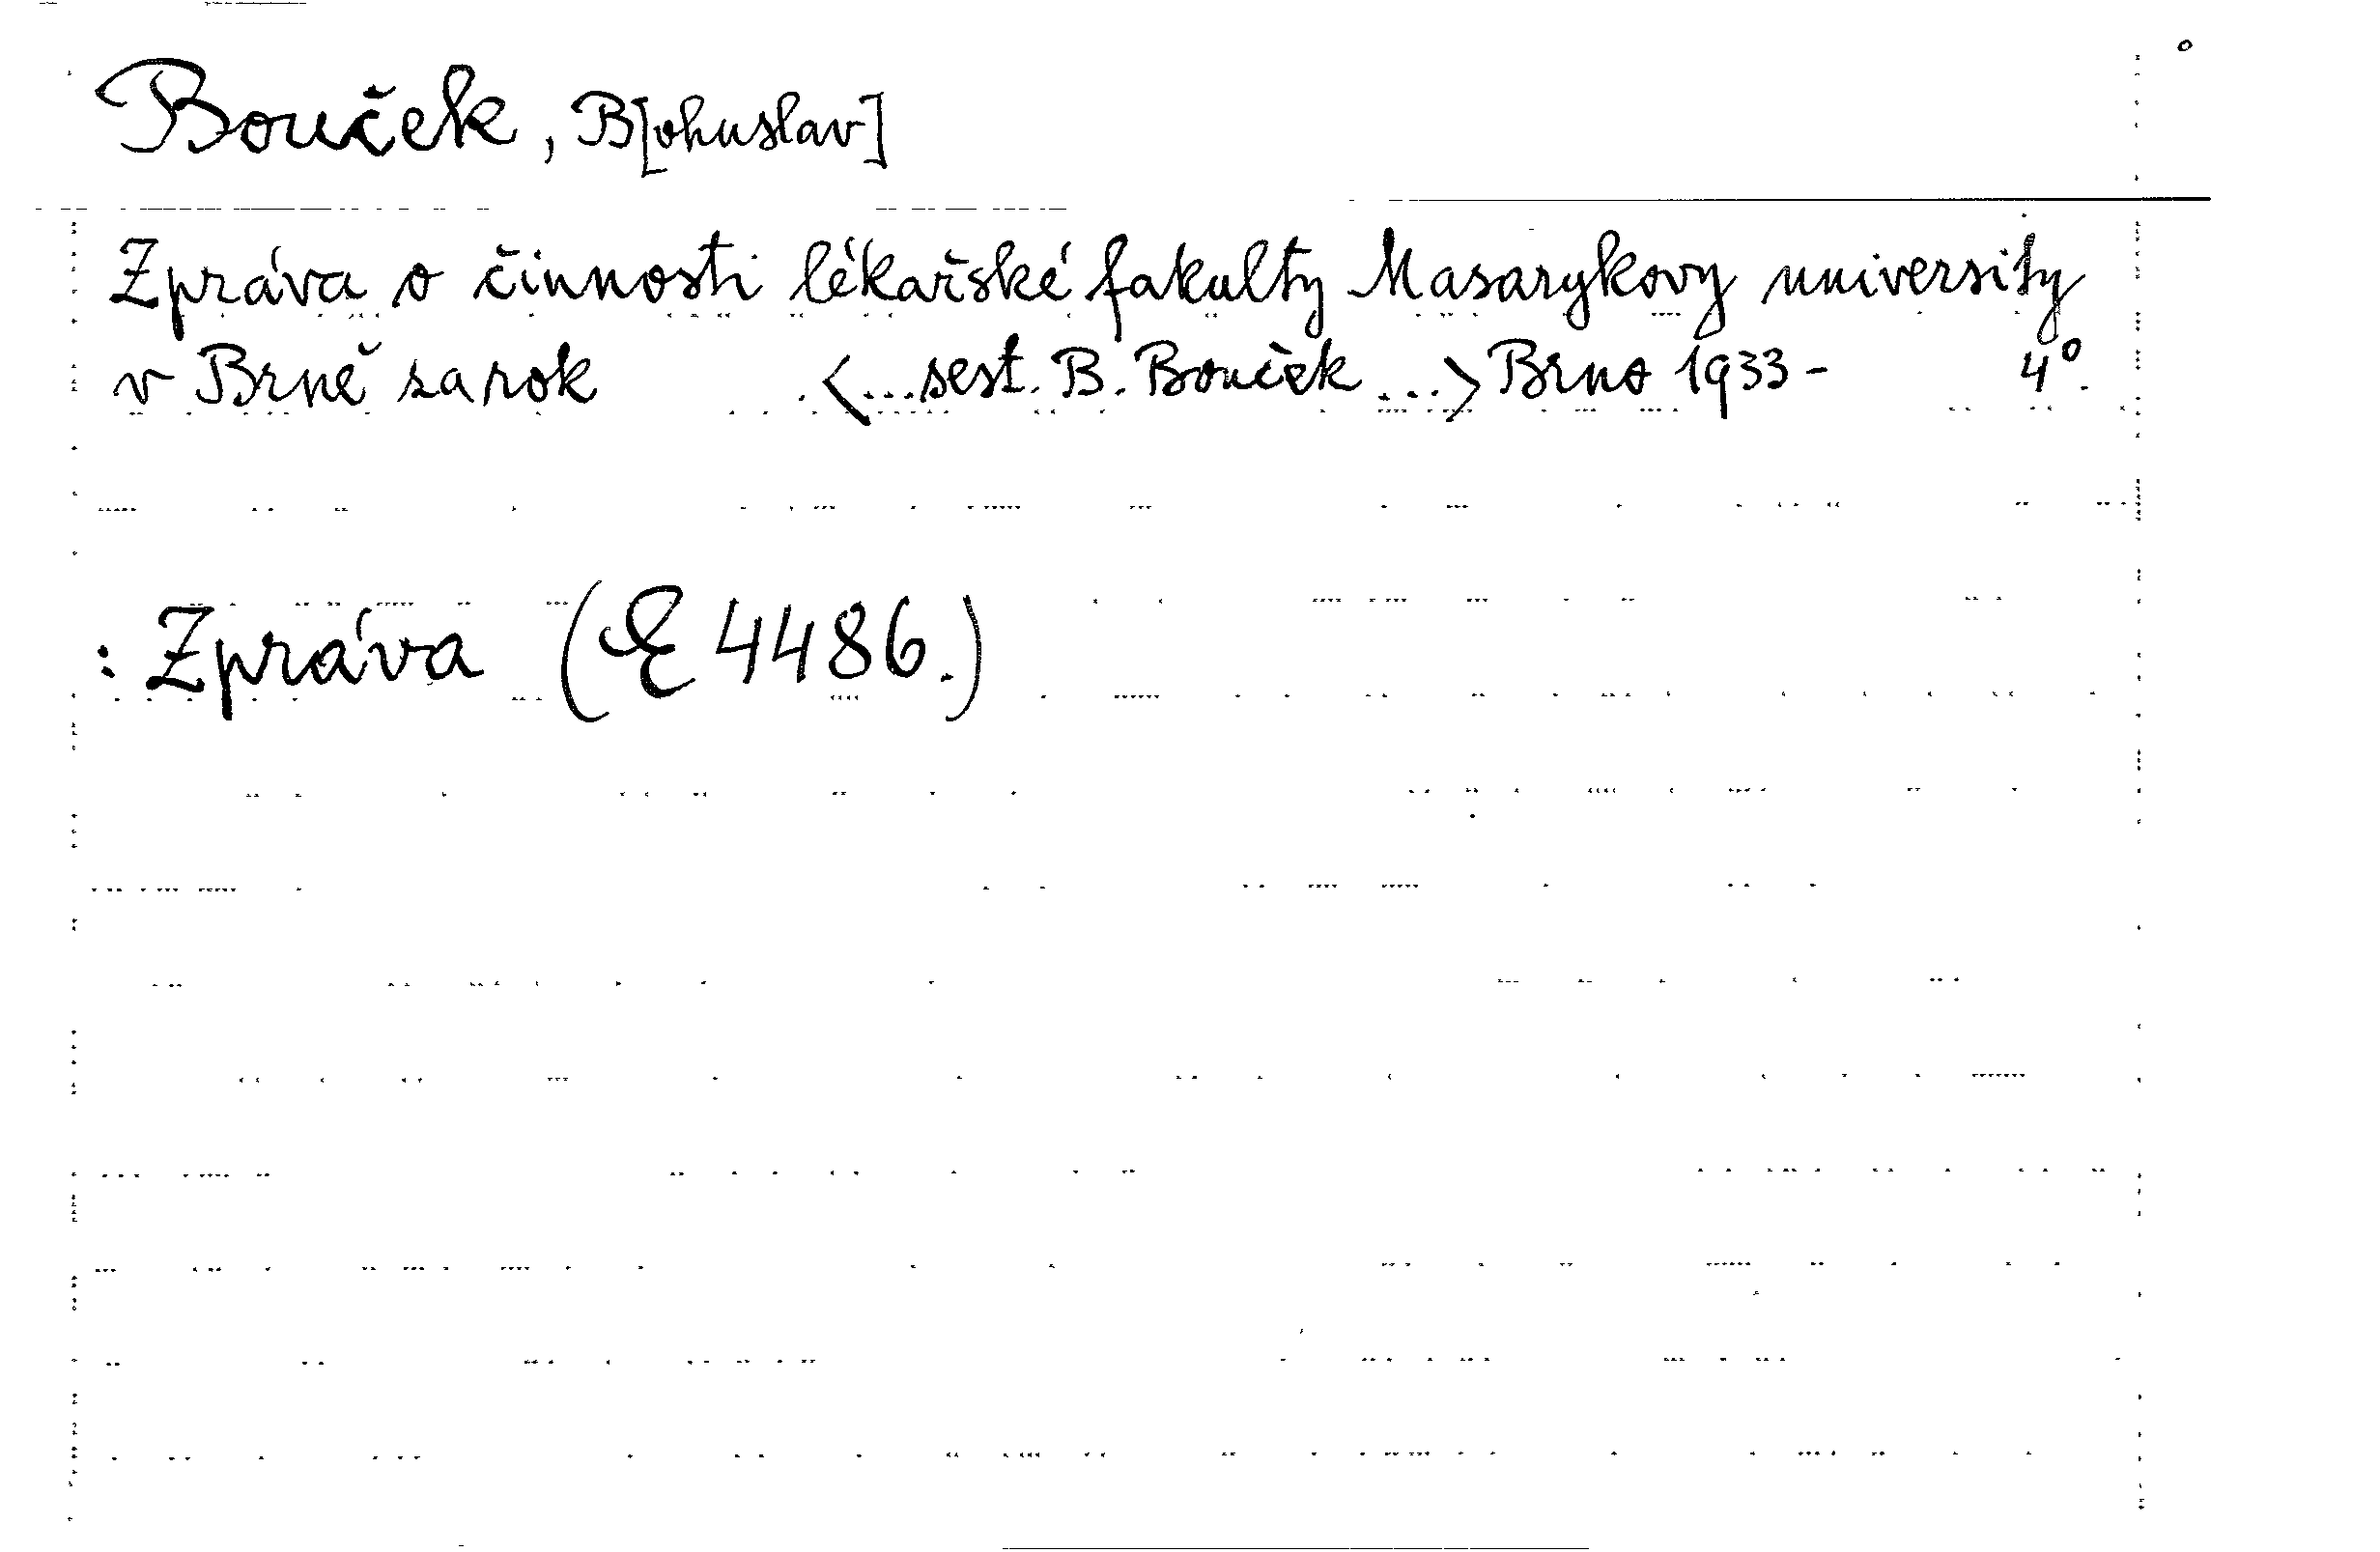 Bouček, B[ohuslav]
Zpráva o činnosti lékařské fakulty Masarykovy university
v Brně za rok . <...sest. B. Bouček...> Brno 1933 - 4°.
: Zpráva (E 4486.)